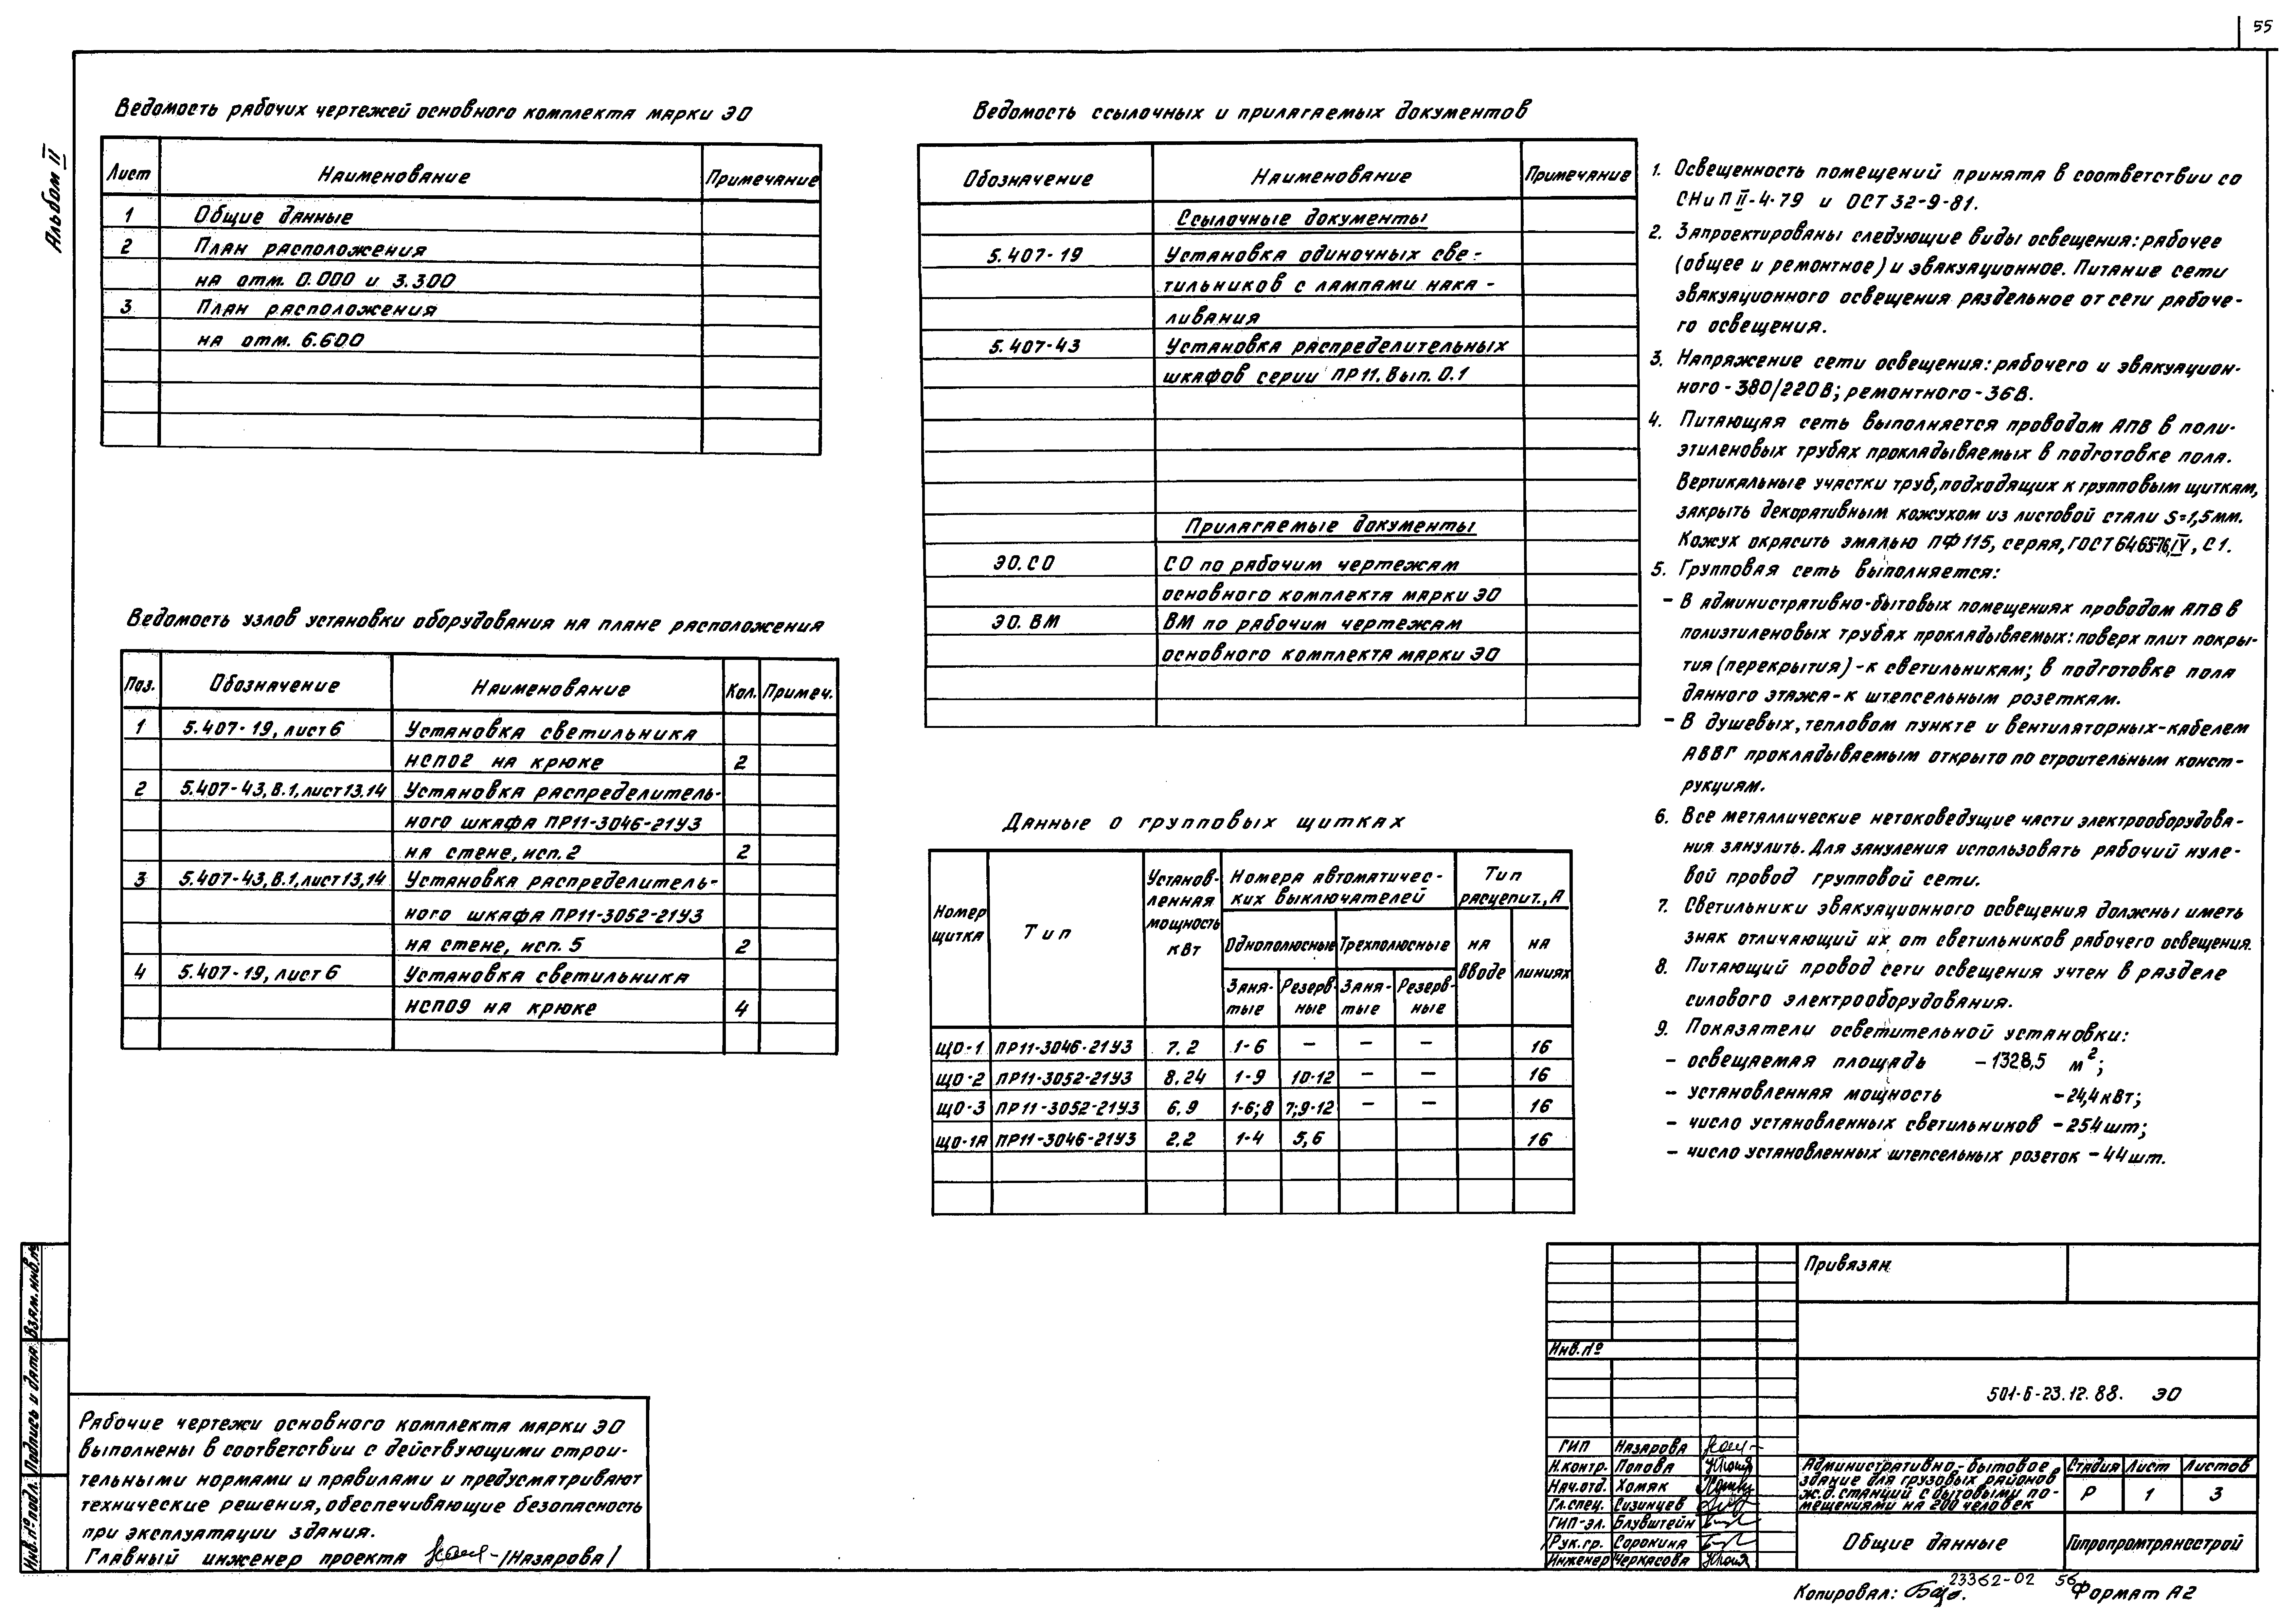 55
Альбом II
Ведомость рабочих чертежей основного комплекта марки ЭО
Лист Наименование Примечание
1 Общие данные
2 План расположения
на отм. 0.000 и 3.300
3 План расположения
на отм. 6.600
Ведомость узлов установки оборудования на плане расположения
Поз. Обозначение Наименование Кол. Примеч.
1 5.407-19, лист 6 Установка светильника
НСП02 на крюке 2
2 5.407-43, В.1, лист 13.14 Установка распределитель-
ного шкафа ПР11-3046-21У3
на стене, исп. 2 2
3 5.407-43, В.1, лист 13,14 Установка распределитель-
ного шкафа ПР11-3052-21У3
на стене, исп. 5 2
4 5.407-19, лист 6 Установка светильника
НСП09 на крюке 4
Ведомость ссылочных и прилагаемых документов
Обозначение Наименование Примечание
Ссылочные документы
5.407-19 Установка одиночных све-
тильников с лампами нака-
ливания
5.407-43 Установка распределительных
шкафов серии ПР11. Вып. 0.1
Прилагаемые документы
ЭО.СО СО по рабочим чертежам
основного комплекта марки ЭО
ЭО.ВМ ВМ по рабочим чертежам
основного комплекта марки ЭО
Данные о групповых щитках
Номер щитка Тип Установ-ленная мощность кВт Номера автоматичес-ких выключателей Тип расцепит., А
Однополюсные Трехполюсные на вводе на линиях
Заня-тые Резерв-ные Заня-тые Резерв-ные
ЩО-1 ПР11-3046-21У3 7.2 1-6 – – – 16
ЩО-2 ПР11-3052-21У3 8.24 1-9 10-12 – – 16
ЩО-3 ПР11-3052-21У3 6.9 1-6; 8 7; 9-12 – – 16
ЩО-1А ПР11-3046-21У3 2.2 1-4 5,6 16
1. Освещенность помещений принята в соответствии со
СНиП II-4-79 и ОСТ 32-9-81.
2. Запроектированы следующие виды освещения: рабочее
(общее и ремонтное) и эвакуационное. Питание сети
эвакуационного освещения раздельное от сети рабоче-
го освещения.
3. Напряжение сети освещения: рабочего и эвакуацион-
ного - 380/220 В; ремонтного - 36 В.
4. Питающая сеть выполняется проводом АПВ в поли-
этиленовых трубах прокладываемых в подготовке пола.
Вертикальные участки труб, подходящих к групповым щиткам,
закрыть декоративным кожухом из листовой стали S=1,5мм.
Кожух окрасить эмалью ПФ 115, серая, ГОСТ 6465-76, IV, С1.
5. Групповая сеть выполняется:
– В административно-бытовых помещениях проводом АПВ в
полиэтиленовых трубах прокладываемых: поверх плит покры-
тия (перекрытия) - к светильникам; в подготовке пола
данного этажа - к штепсельным розеткам.
– В душевых, тепловом пункте и вентиляторных - кабелем
АВВГ прокладываемым открыто по строительным конст-
рукциям.
6. Все металлические нетоковедущие части электрооборудова-
ния занулить. Для зануления использовать рабочий нуле-
вой провод групповой сети.
7. Светильники эвакуационного освещения должны иметь
знак отличающий их от светильников рабочего освещения.
8. Питающий провод сети освещения учтен в разделе
силового электрооборудования.
9. Показатели осветительной установки:
– освещаемая площадь – 1328,5 м²;
– установленная мощность – 24,4 кВт;
– число установленных светильников – 254 шт;
– число установленных штепсельных розеток – 44 шт.
Рабочие чертежи основного комплекта марки ЭО
выполнены в соответствии с действующими строи-
тельными нормами и правилами и предусматривают
технические решения, обеспечивающие безопасность
при эксплуатации здания.
Главный инженер проекта /Назарова/
Взам. инв. №
Подпись и дата
Инв. № подл.
Привязан
Инв. №
501-6-23.12.88. ЭО
ГИП Назарова
Н.контр. Попова
Нач.отд. Хомяк
Гл.спец. Сизинцев
ГИП-эл. Блувштейн
Рук.гр. Сорокина
Инженер Черкасова
Административно-бытовое
здание для грузовых районов
ж.д. станций с бытовыми по-
мещениями на 200 человек
Стадия Лист Листов
Р 1 3
Общие данные
Гипропромтрансстрой
Копировал:
23362-02 56
Формат А2